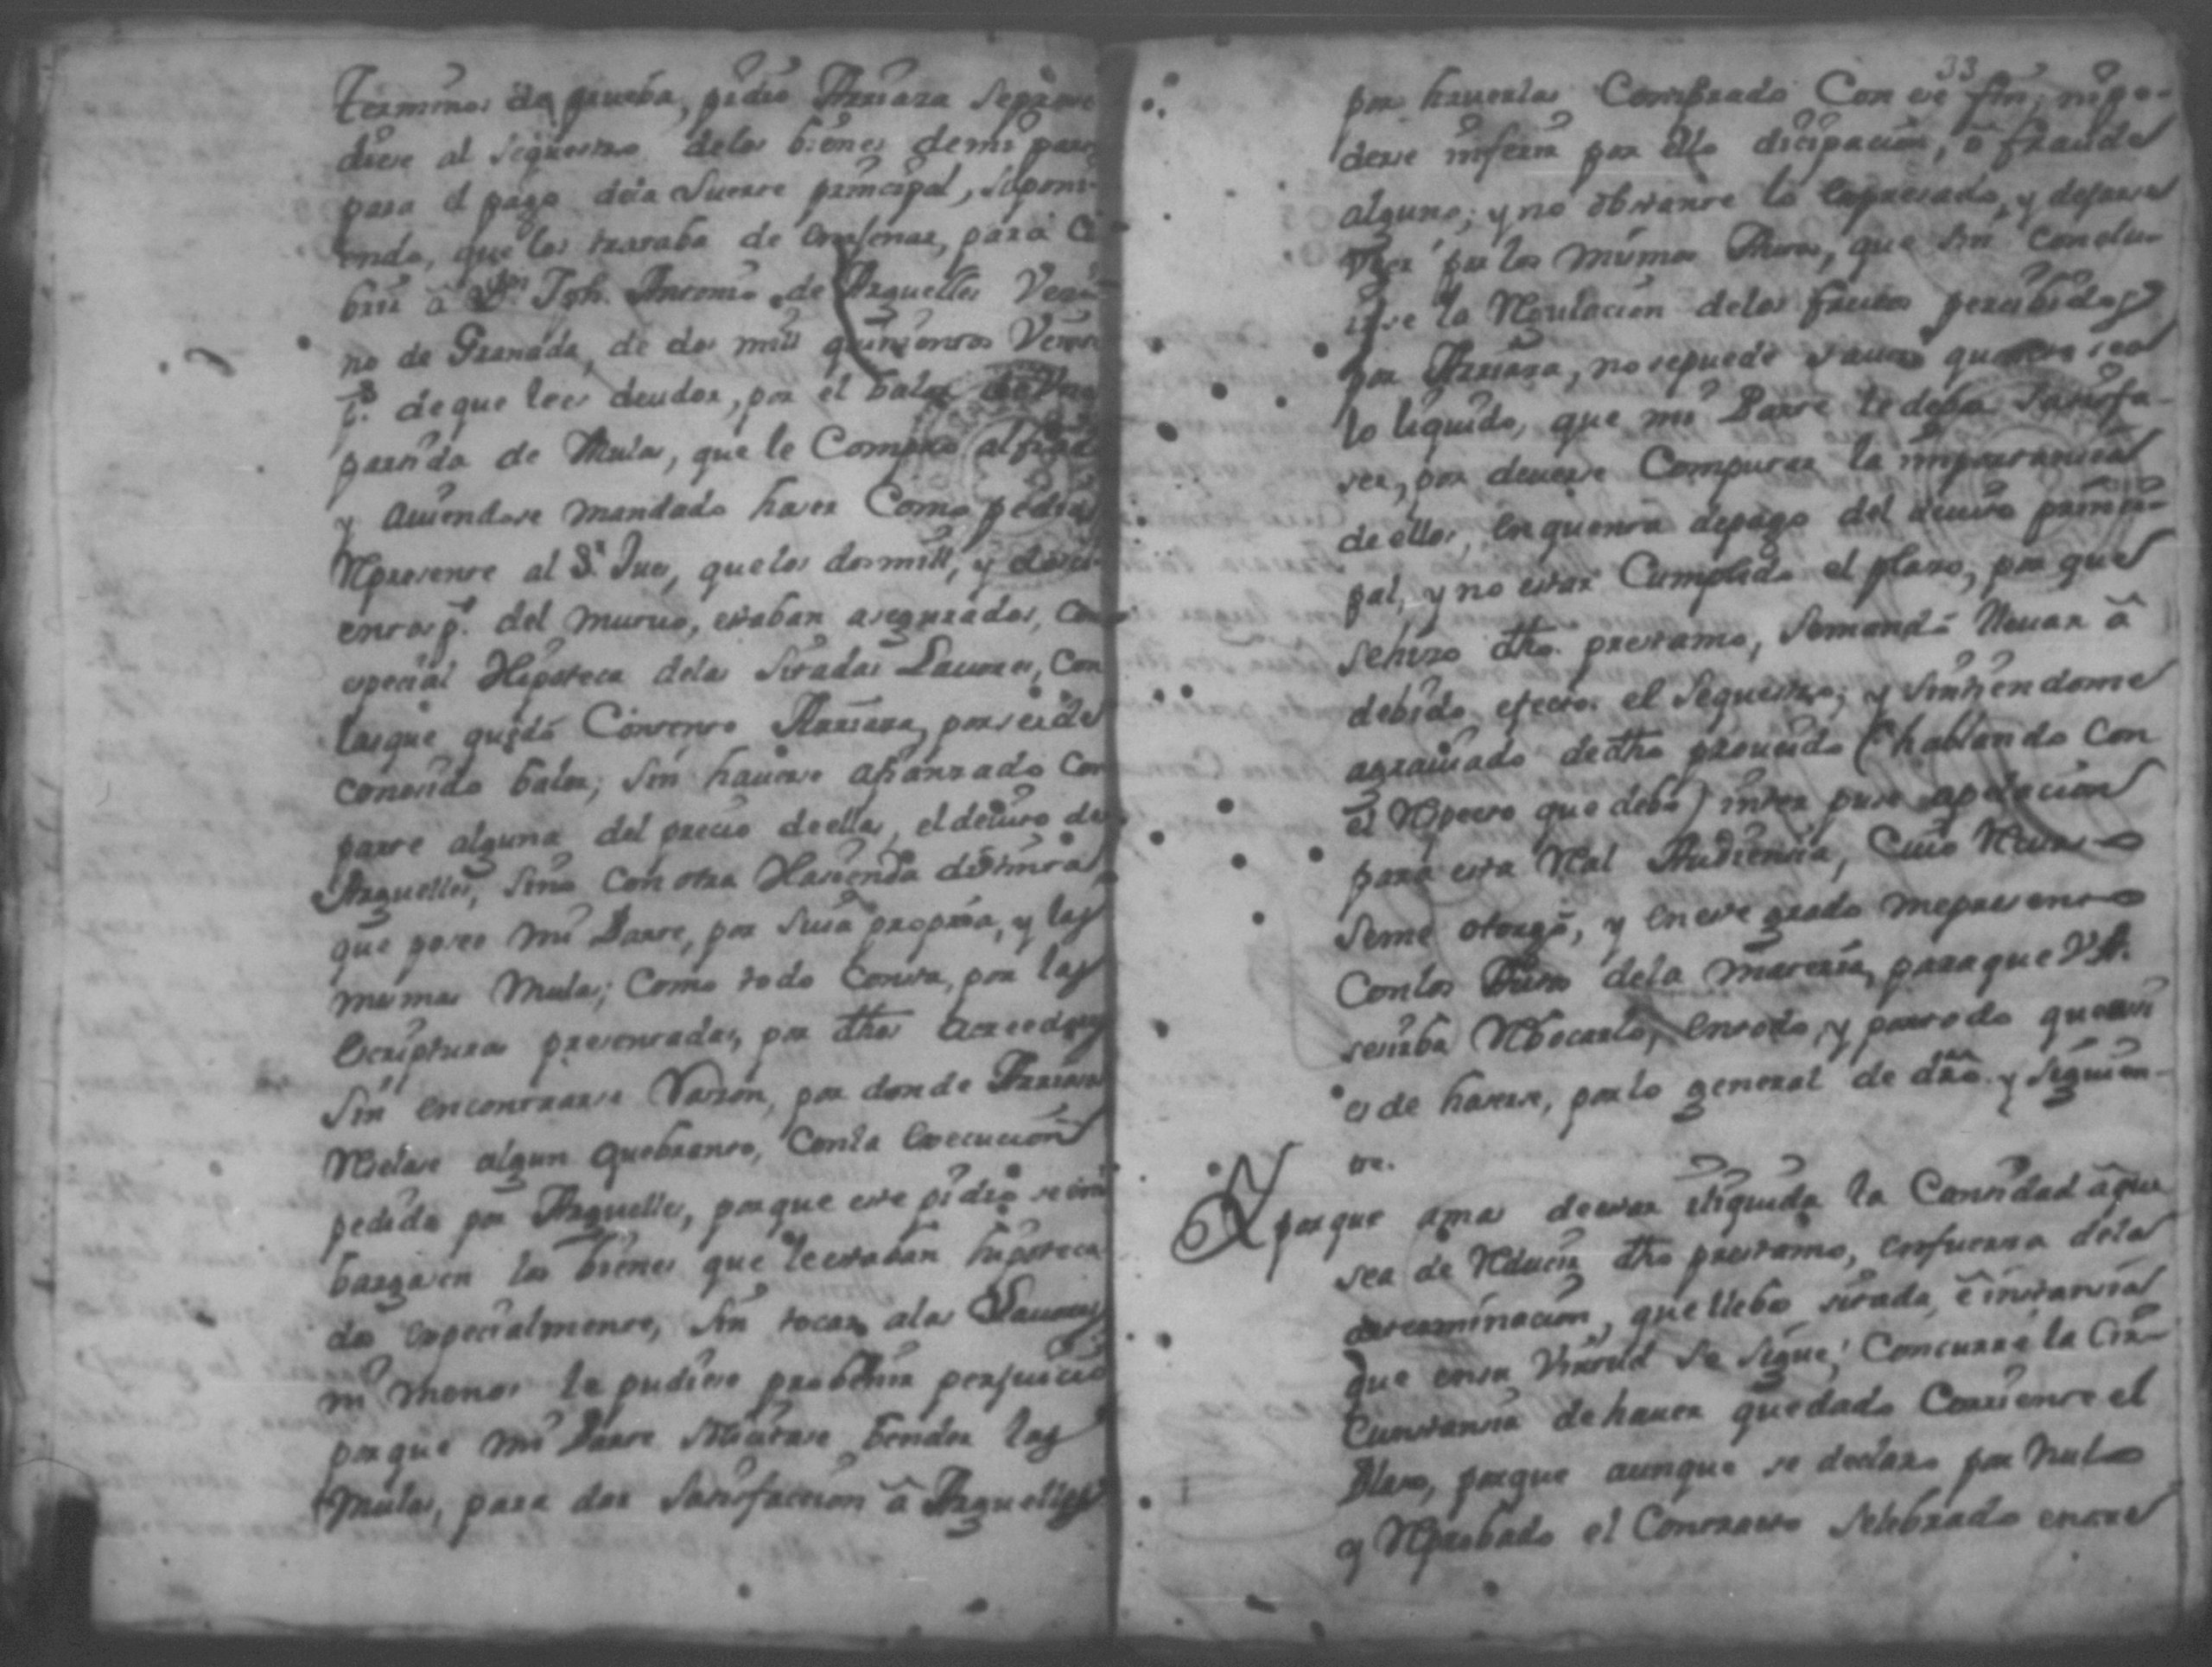 terminos de prueba, pidio Arriaza seproce
diese al sequestro delos bienes demi parte
para el pago dela Suerte principal, suponi-
endo, que los trataba de enagenar, para Cu
brir â Dn. Jph. Antonio de Arguelles Vezi-
no de Granada, de dos mill quinientos Veinte
ps. deque lees deudor, por el balor de Una
partida de Mulas, que le Compro alfiado
y aviendose mandado haser Como pedia
Represente al Sr. Jues, quelos dosmill, y dosci-
entos ps. del mutuo, estaban asegurados, con
especial Hipoteca delas Sitadas Lavores, Con
lasque quedó Contento Arriaza, por ser de
conosido balor; sin haverse afianzado Con
parte alguna del precio deellas, el devito de
Arguelles, sino Con otra Hasienda distinta
que posee mi Parte, por Suia propria, y las
mismas Mulas; Como todo Consta, por las
Escripturas presentadas, por dhos Acreedores
Sin encontrarse Rason, por donde Arriaza
Recelase algun quebranto, Conla Execucion
pedida por Arguelles, porque este pidio se em
bargasen los bienes que leestaban hipoteca
dos especialmente, sin tocar alas Lavores
ni menos le pudiese probenir perjuicio
por que mi Parte solicitase bender las
Mulas, para dar Satisfaccion â Arguelles
33
por haverlas Comprado Con ese fin; ni po-
derse inferir por ello dicipacion, ô fraude
alguno; y no obstante lo expresado, y dejarse
Ver por los mismos Autos, que sin Conclu-
irse la Regulacion delos frutos percibidos
por Arriaza, no sepuede saver quanto sea
lo liquido, que mi Parte le deba Satisfa-
ser, por deverse Computar la importancia
de ellos, en quenta depago del devito princi-
pal, y no estar Cumplido el plazo, por que
sehizo dho. prestamo, semandó llevar â
debido efecto el sequestro; y sintiendome
agraviado dedho proveido (hablando Con
el Respecto que debo) inter puse apelacion
para esta Real Audiencia, Cuio Recurso
seme otorgó, y en este grado mepresento
Con los Autos dela materia, paraque V.A.
sesirba Rebocarlo, entodo, y portodo que assi
es de haserse, por lo general de dro. y siguien-
te.
Y porque amas de estar iliquida la Cantidad âque
sea de Reducir dho prestamo, enfuerza dela
determinacion, que llebo sitada, ê instancia
que ensu Virtud se sigue; Concurre la Cir-
Cunstancia dehaver quedado Corriente el
Plazo, porque aunque se declaro por Nulo
y Reprobado el Contrato selebrado entre